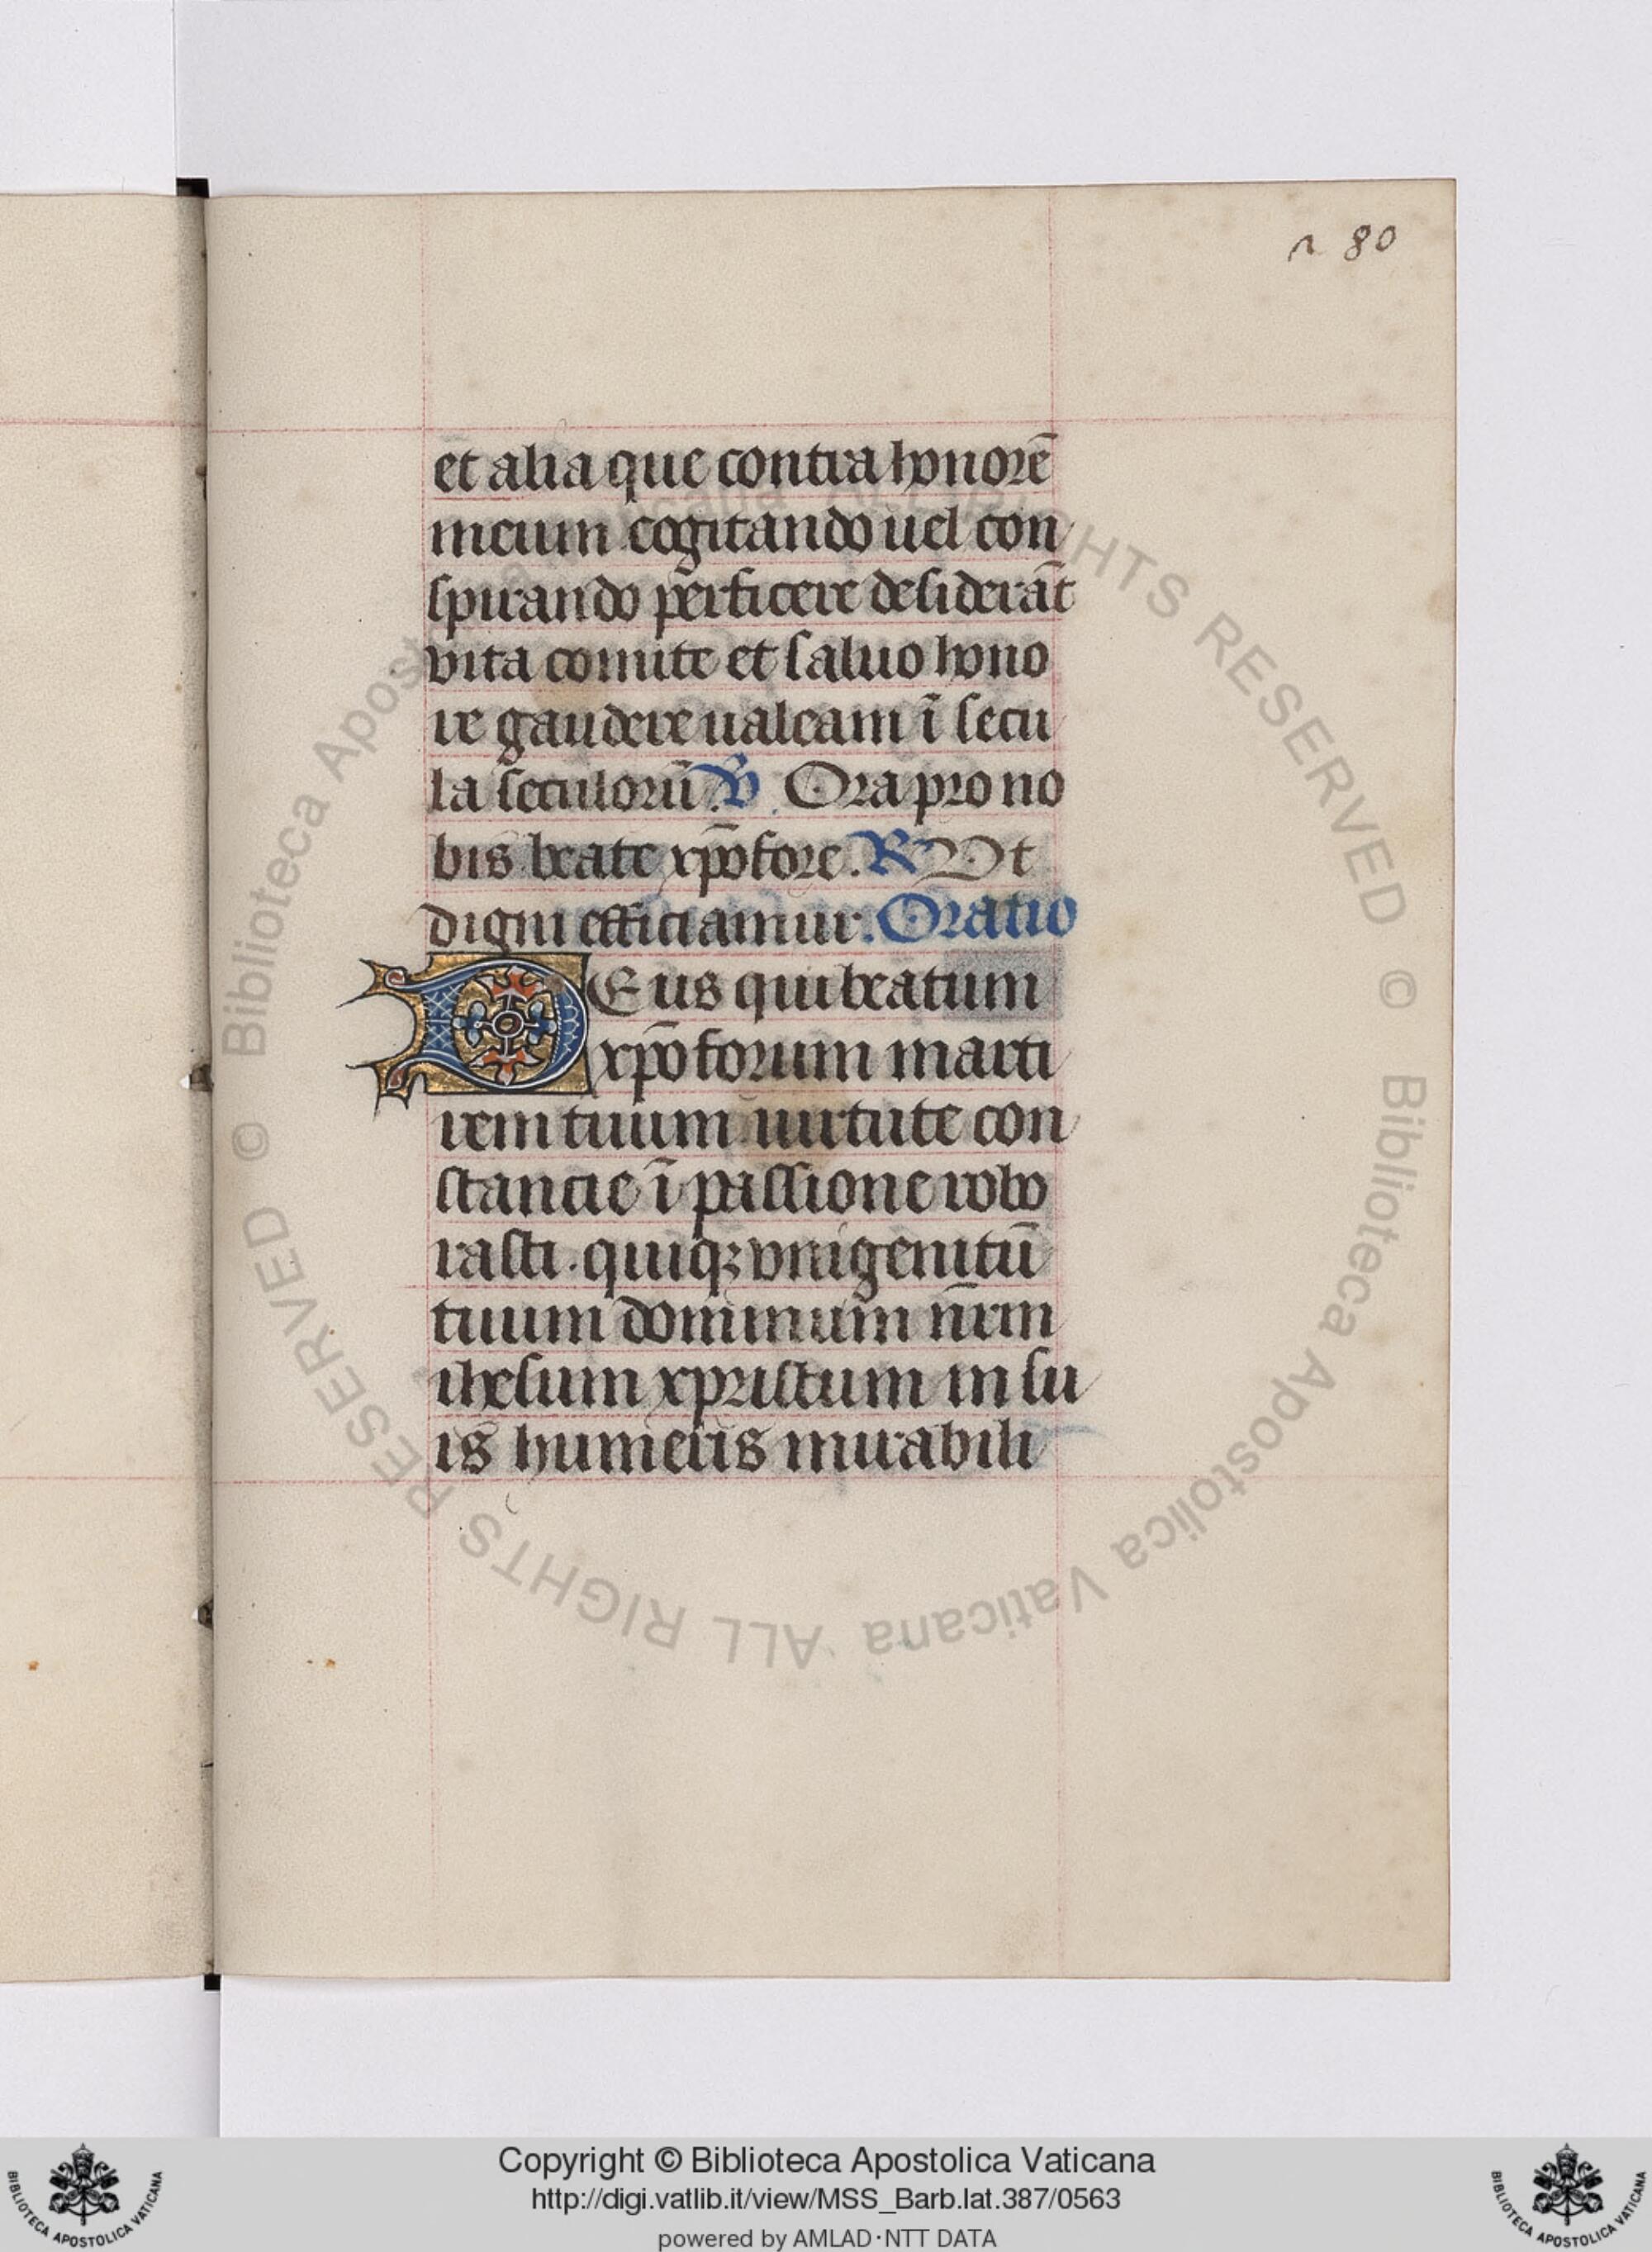 n 80
et alia que contra honorē
meum cogitando uel con
spirando perficere desiderāt
vita comite et saluo hono
re gaudere ualeam ī secu
la seculorū. V Ora pro no
bis beate xp̄ofore. R Vt
digni efficiamur. Oratio
DEus qui beatum
xp̄oforum marti
rem tuum uirtute con
stancie ī passione robo
rasti. quiqꝫ vnigenitū
tuum dominum nr̄m
ihesum xpristum in su
is humeris mirabili
© Biblioteca Apostolica Vaticana ALL RIGHTS RESERVED
© Biblioteca Apostolica Vaticana ALL RIGHTS RESERVED
Copyright © Biblioteca Apostolica Vaticana
http://digi.vatlib.it/view/MSS_Barb.lat.387/0563
powered by AMLAD·NTT DATA
BIBLIOTECA APOSTOLICA VATICANA
BIBLIOTECA APOSTOLICA VATICANA